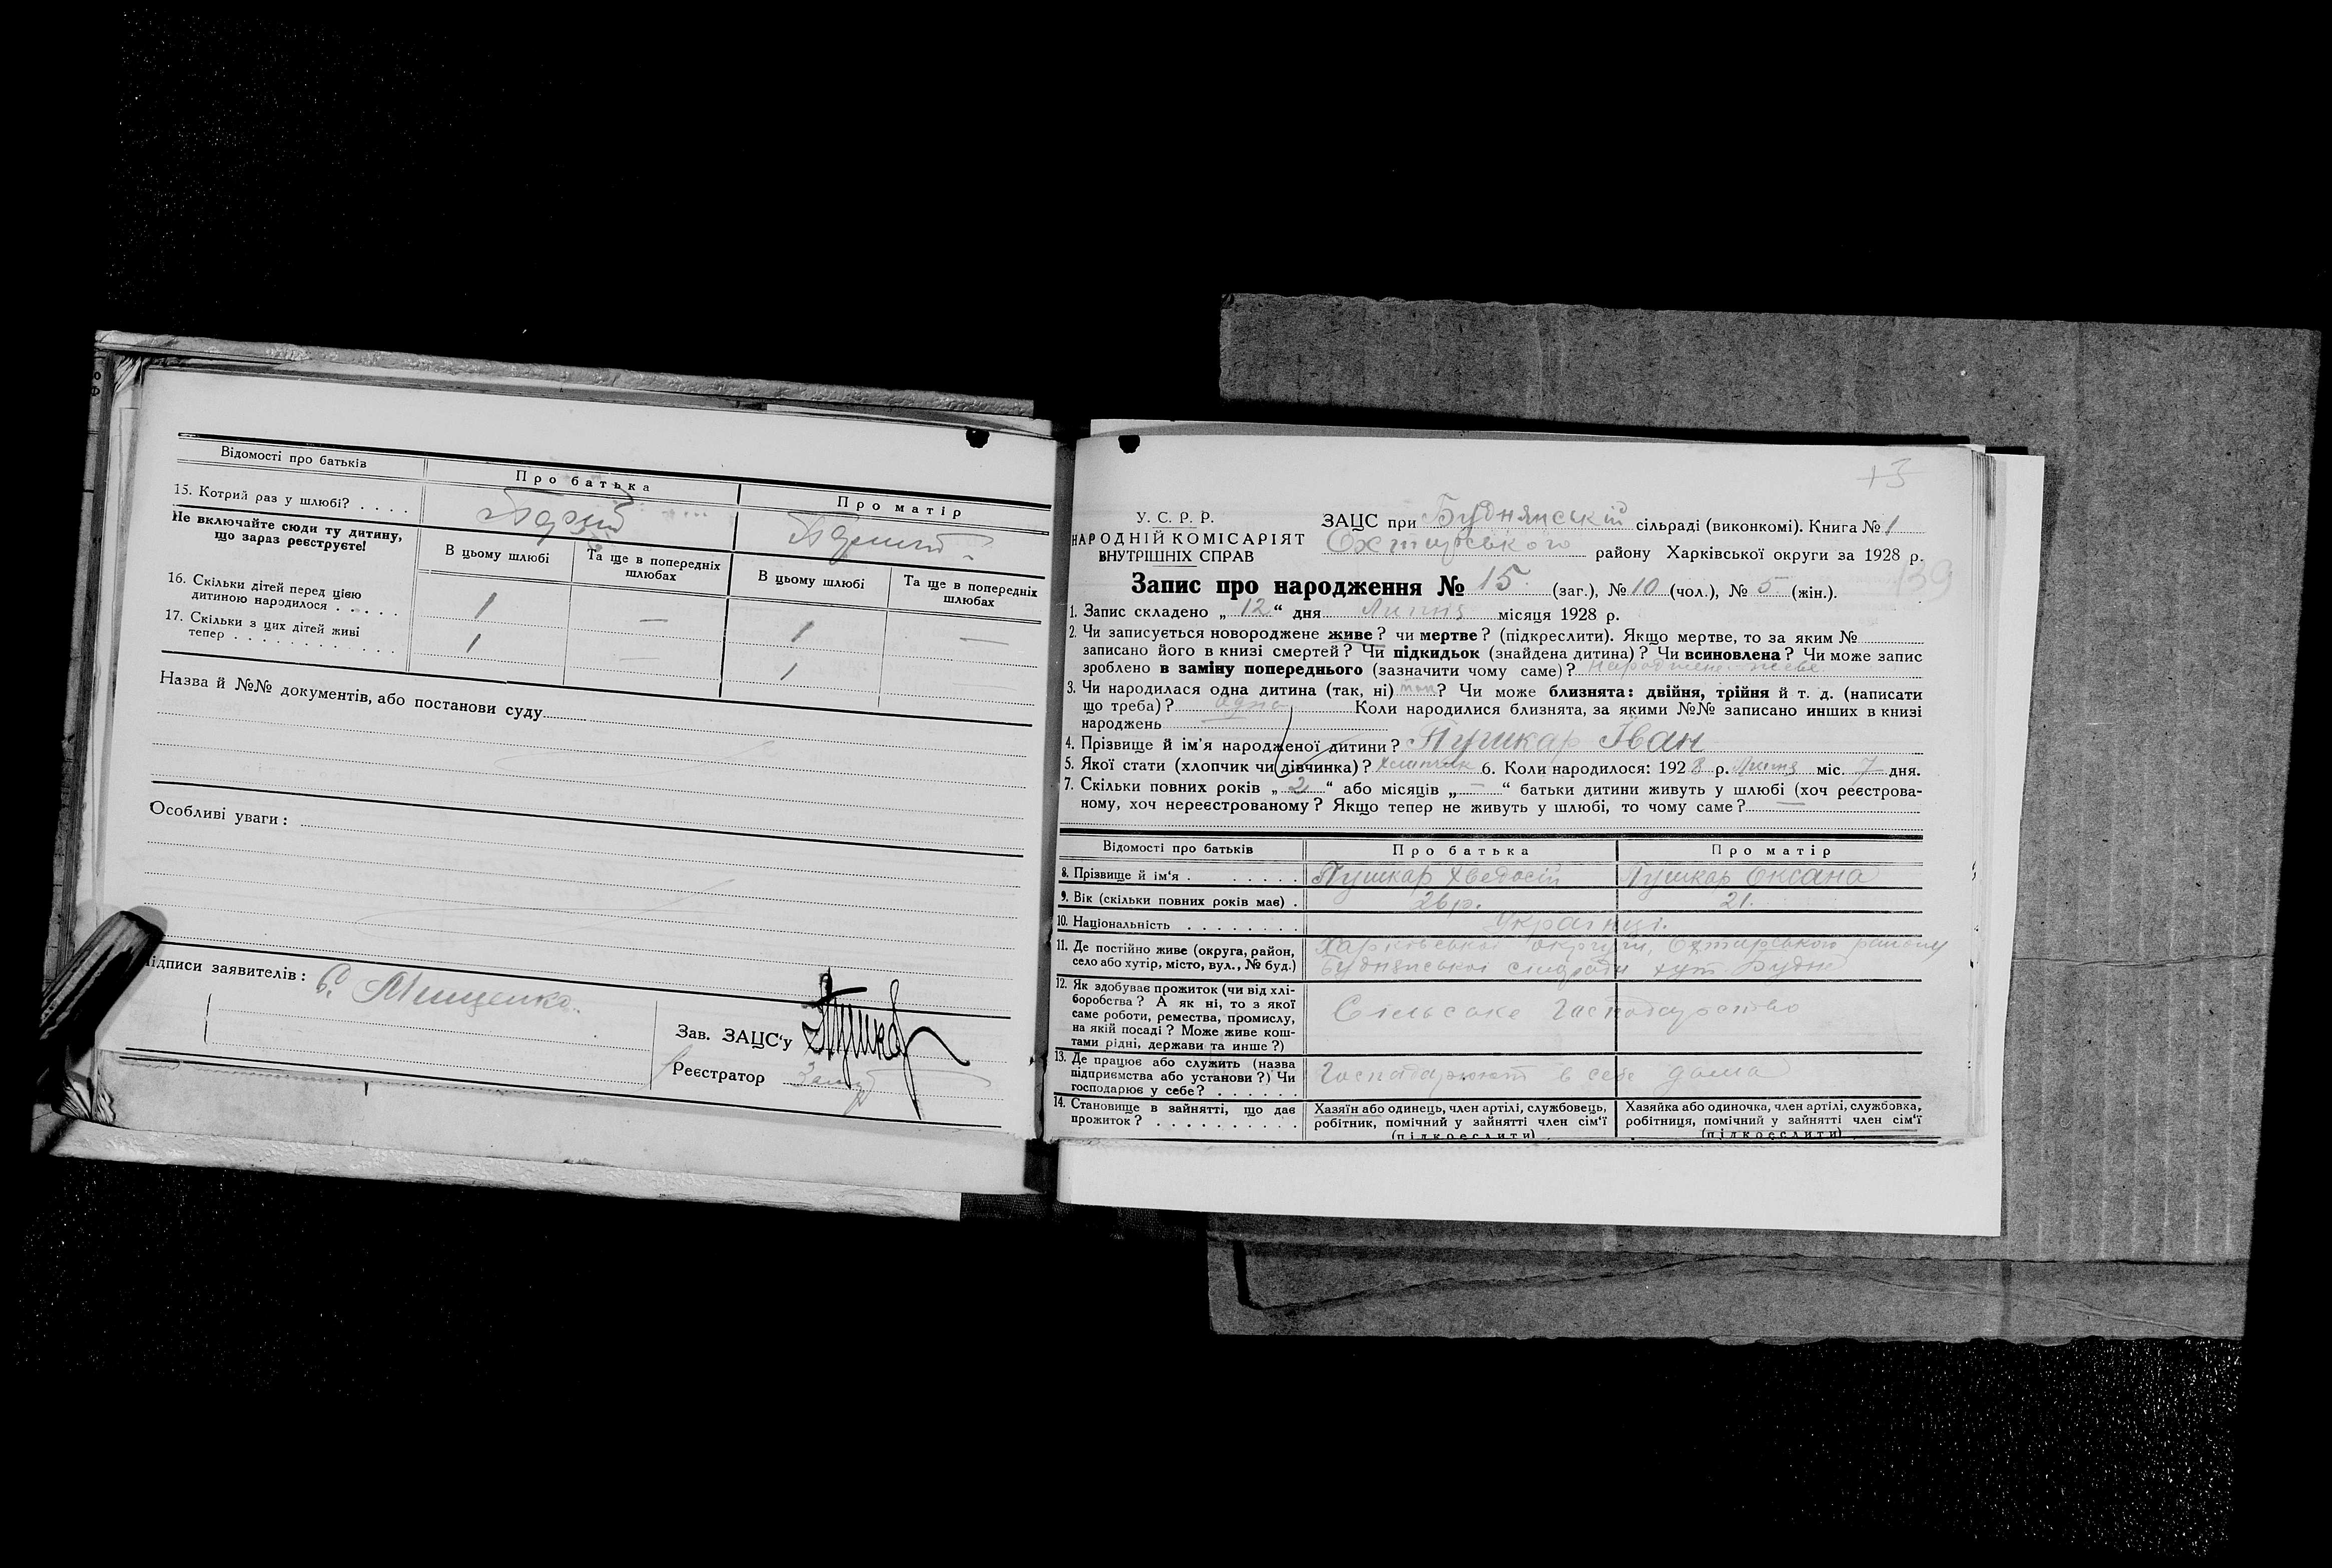 Відомості про батьків
Про батька
Про матір
15. Котрий раз у шлюбі? . . . .
Не включайте сюди ту дитину,
що зараз реєструєте!
В цьому шлюбі
Та ще в попередніх
шлюбах
В цьому шлюбі
Та ще в попередніх
шлюбах
16. Скільки дітей перед цією
дитиною народилося . . . . .
1 — 1 —
17. Скільки з цих дітей живі
тепер . . . . . . . . . . . .
1 — 1
Назва й №№ документів, або постанови суду
Особливі уваги:
Підписи заявителів: Мищенко
Зав. ЗАЦС'у Пушкар
Реєстратор
+3
У. С. Р. Р.
НАРОДНІЙ КОМІСАРІЯТ
ВНУТРІШНІХ СПРАВ
ЗАЦС при Буднянській сільраді (виконкомі). Книга № 1
Охтирського району Харківської округи за 1928 р.
139
Запис про народження № 15 (заг.), № 10 (чол.), № 5 (жін.).
1. Запис складено „12“ дня Липня місяця 1928 р.
2. Чи записується новороджене живе? чи мертве? (підкреслити). Якщо мертве, то за яким №
записано його в книзі смертей? Чи підкидьок (знайдена дитина)? Чи всиновлена? Чи може запис
зроблено в заміну попереднього (зазначити чому саме)? народжене живе
3. Чи народилася одна дитина (так, ні) так? Чи може близнята: двійня, трійня й т. д. (написати
що треба)? одна Коли народилися близнята, за якими №№ записано инших в книзі
народжень
4. Прізвище й ім'я народженої дитини? Пушкар Іван
5. Якої стати (хлопчик чи дівчинка)? хлопчик 6. Коли народилося: 1928 р. Липня міс. 7 дня.
7. Скільки повних років „2“ або місяців „—“ батьки дитини живуть у шлюбі (хоч реєстрова-
ному, хоч нереєстрованому? Якщо тепер не живуть у шлюбі, то чому саме? —
Відомості про батьків
Про батька
Про матір
8. Прізвище й ім'я . . . . . . Пушкар Хведосій Пушкар Оксана
9. Вік (скільки повних років має) . 26 р. 21.
10. Національність . . . . . . . . Українці.
11. Де постійно живе (округа, район,
село або хутір, місто, вул., № буд.)
Харківської округи, Охтирського району
Буднянської сільради хут. Будне
12. Як здобуває прожиток (чи від хлі-
боробства? А як ні, то з якої
саме роботи, ремества, промислу,
на якій посаді? Може живе кош-
тами рідні, держави та инше?)
Сільське Господарство
13. Де працює або служить (назва
підприємства або установи?) Чи
господарює у себе? . . . . . .
Господарюють в себе дома
14. Становище в зайнятті, що дає
прожиток? . . . . . . . . . .
Хазяїн або одинець, член артілі, службовець,
робітник, помічний у зайнятті член сім'ї
(підкреслити)
Хазяйка або одиночка, член артілі, службовка,
робітниця, помічний у зайнятті член сім'ї
(підкреслити)